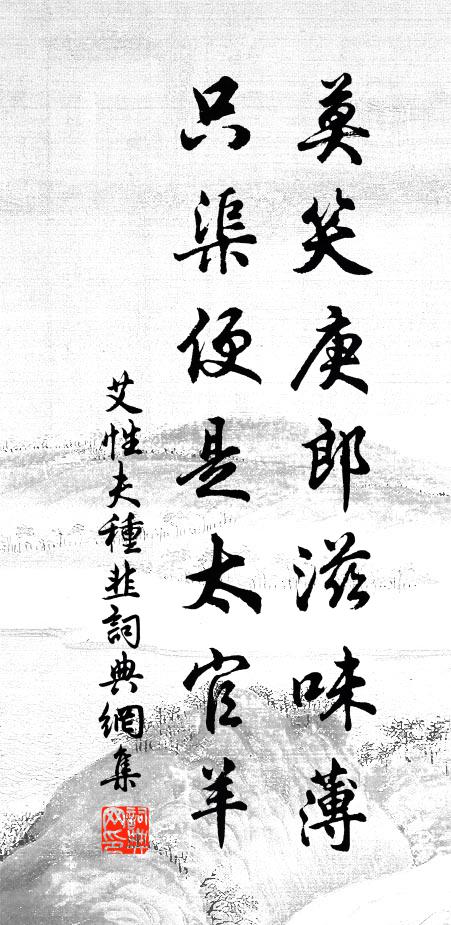 莫笑庚郎滋味薄
只渠便是太官羊
艾性夫種韮詞典網集
詞典網印